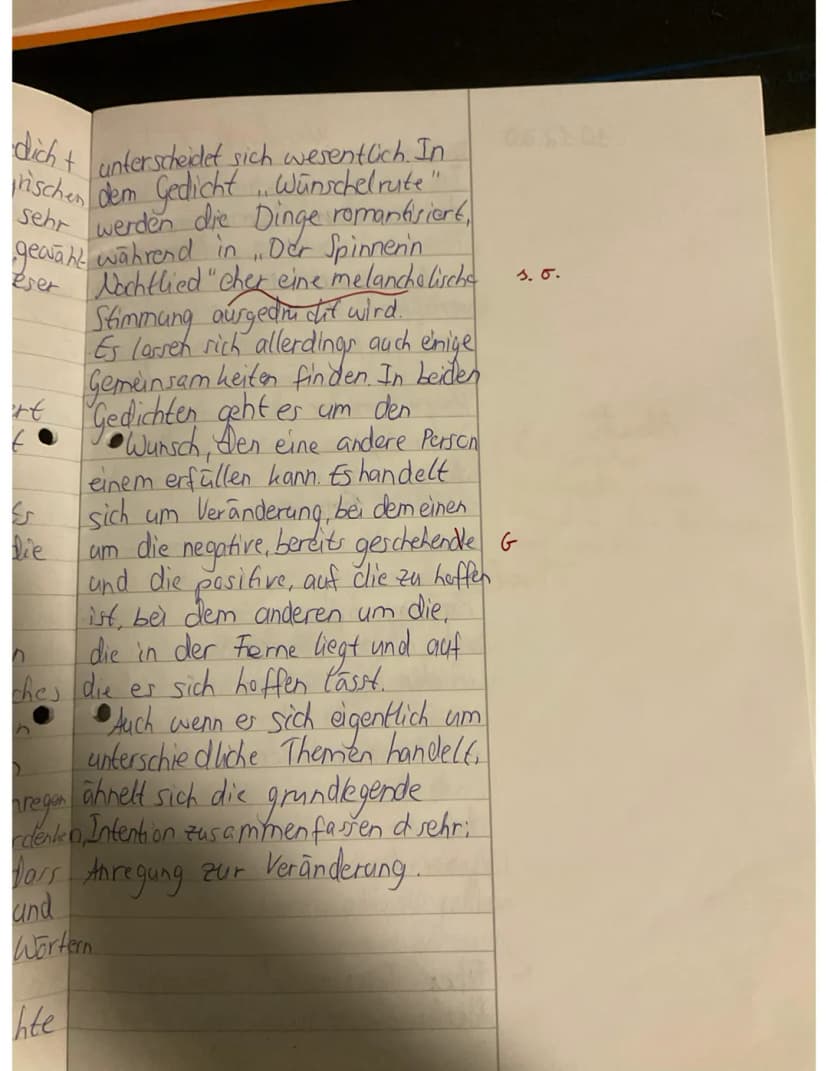 dicht
rischen
sehr
gewähl
eser
ert
t
Es
die
n
ches
n
n
nregen
rdenken,
dass
und
Wörtern
hte
unterscheidet sich wesentlich. In
dem Gedicht „Wünschelrute"
werden die Dinge romantisiert,
während in „Der Spinnerin
Nachtlied" eher eine melancholische
Stimmung ausgedrückt wird.
Es lassen sich allerdings auch einige
Gemeinsamkeiten finden. In beiden
Gedichten geht es um den
Wunsch, den eine andere Person
einem erfüllen kann. Es handelt
sich um Veränderung, bei dem einen
um die negative, bereits geschehende
und die positive, auf die zu hoffen
ist, bei dem anderen um die,
die in der Ferne liegt und auf
die es sich hoffen lässt.
Auch wenn es sich eigentlich um
unterschiedliche Themen handelt,
ähnelt sich die grundlegende
Intention zusammenfassend sehr:
Anregung zur Veränderung.
s. o.
G